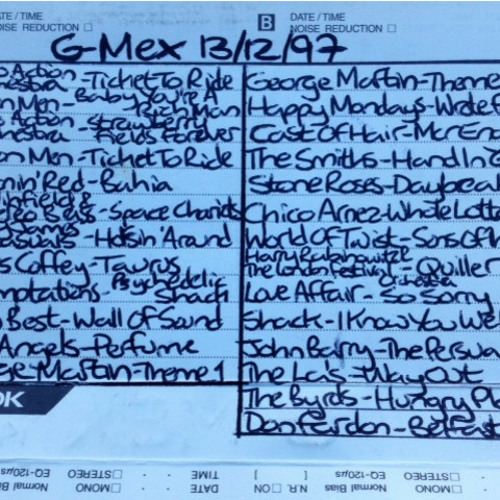 TE / TIME
OISE REDUCTION
B
DATE / TIME
NOISE REDUCTION
G-Mex 13/12/97
Action
estra - Ticket To Ride
n Men - Baby You're A
Rich Man
Action - Strawberry
hestra Fields Forever
on Men - Ticket To Ride
nin' Red - Bahia
hfield &
Bass - Space Chariots
James
asuals - Hossin' Around
s Coffey - Taurus
mptations - Psychedelic
Shack
Best - Wall Of Sound
Angels - Perfume
ge Martin - Theme 1
George Martin - Theme
Happy Mondays - Wrote
Cast Of Hair - Mcr En
The Smiths - Hand In
Stone Roses - Daybrea
Chico Arnez - Whole Lott
World Of Twist - Sons Of
Harry Rabinowitz
The London Festival - Quiller
Orchestra
Love Affair - So Sorry
Shack - I Know You We
John Barry - The Persua
The La's - Way Out
The Byrds - Hungry Pl
Don Fardon - Belfast
DK
EQ-120µs
STEREO
TIME
EQ-120µs
STEREO
Normal Bias
MONO
DATE
ON
N.R.
Normal Bias
MONO